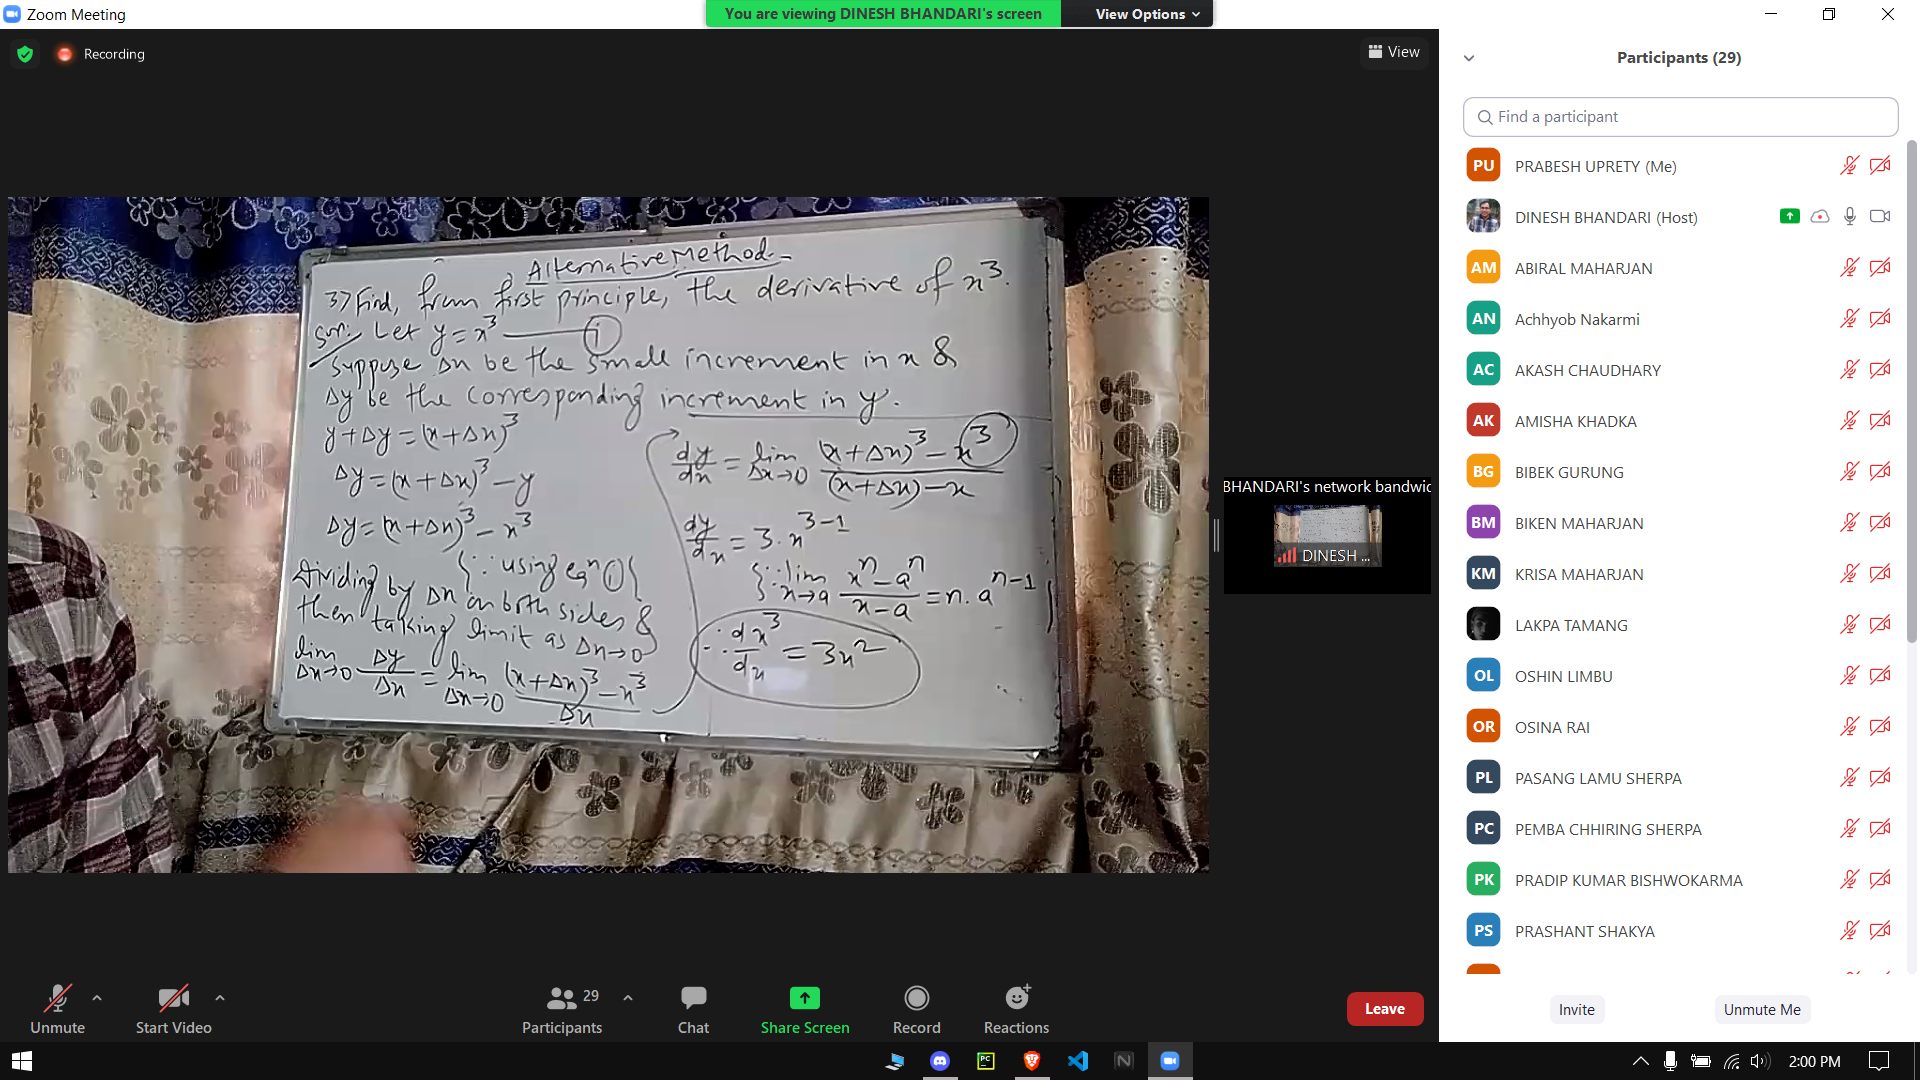 Zoom Meeting
You are viewing DINESH BHANDARI's screen
View Options
Recording
View
Alternative Method
3> Find, from first principle, the derivative of x³.
Soln: Let y = x³ ——— (i)
Suppose Δx be the small increment in x &
Δy be the corresponding increment in y.
y + Δy = (x + Δx)³
Δy = (x + Δx)³ − y
Δy = (x + Δx)³ − x³
{∵ using eqn (i)}
Dividing by Δx on both sides &
then taking limit as Δx→0
lim Δx→0 Δy/Δx = lim Δx→0 ((x + Δx)³ − x³)/Δx
dy/dx = lim Δx→0 ((x + Δx)³ − x³)/((x + Δx) − x)
dy/dx = 3. x³⁻¹
{∵ lim x→a (xⁿ − aⁿ)/(x − a) = n. aⁿ⁻¹}
∴ dx³/dx = 3x²
BHANDARI's network bandwid
DINESH ...
Participants (29)
Find a participant
PU PRABESH UPRETY (Me)
DINESH BHANDARI (Host)
AM ABIRAL MAHARJAN
AN Achhyob Nakarmi
AC AKASH CHAUDHARY
AK AMISHA KHADKA
BG BIBEK GURUNG
BM BIKEN MAHARJAN
KM KRISA MAHARJAN
LAKPA TAMANG
OL OSHIN LIMBU
OR OSINA RAI
PL PASANG LAMU SHERPA
PC PEMBA CHHIRING SHERPA
PK PRADIP KUMAR BISHWOKARMA
PS PRASHANT SHAKYA
Invite
Unmute Me
Unmute
Start Video
29
Participants
Chat
Share Screen
Record
Reactions
Leave
PC
N
2:00 PM